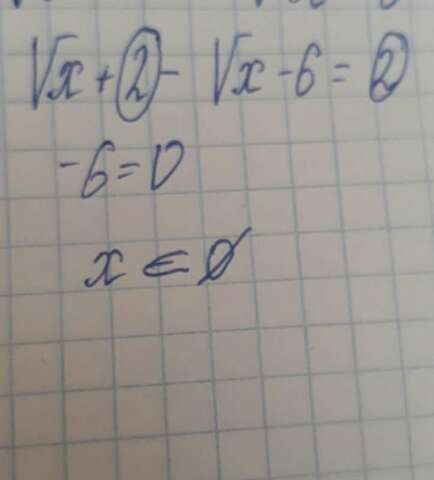 √x + 2 - √x - 6 = 2
-6 = 0
x ∈ ∅